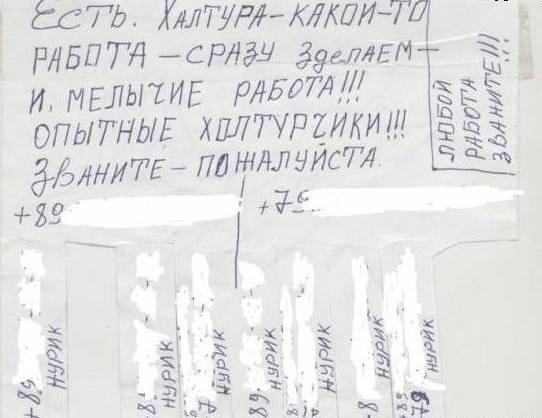 ЕСТЬ. ХАЛТУРА-КАКОЙ-ТО
РАБОТА-СРАЗУ ЗДЕЛАЕМ-
И. МЕЛЫЧИЕ РАБОТА!!!
ОПЫТНЫЕ ХОЛТУРЧИКИ!!!
ЗВАНИТЕ-ПОЖАЛУЙСТА.
ЛЮБОЙ
РАБОТА
ЗВАНИТЕ!!!
+89
+79
+89
НУРИК
89
НУРИК
+7
НУРИК
89
НУРИК
НУРИК
8
НУРИК
+79
НУРИК